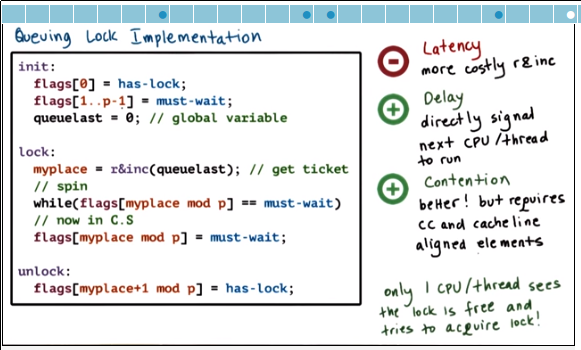 Queuing Lock Implementation
init:
flags[0] = has-lock;
flags[1..p-1] = must-wait;
queuelast = 0; // global variable
lock:
myplace = r&inc(queuelast); // get ticket
// spin
while(flags[myplace mod p] == must-wait)
// now in C.S
flags[myplace mod p] = must-wait;
unlock:
flags[myplace+1 mod p] = has-lock;
Latency
more costly r&inc
Delay
directly signal
next CPU/thread
to run
Contention
better! but requires
CC and cacheline
aligned elements
only 1 CPU/thread sees
the lock is free and
tries to acquire lock!